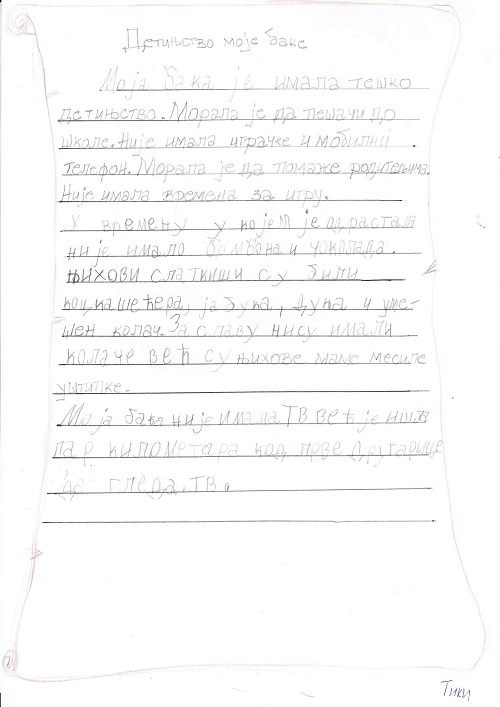 Детињство моје баке
Моја бака је имала тешко
детињство. Морала је да пешачи до
школе. Није имала играчке и мобилни
телефон. Морала је да помаже родитељима.
Није имала времена за игру.
У времену у којем је одрастала
није имало бомбона и чоколада.
Њихови слаткиши су били
коцка шећера, јабука, дуња и уме-
шен колач. За славу нису имали
колаче већ су њихове маме месиле
уштипке.
Моја бака није имала ТВ већ је ишла
пар километара код прве другарице
да гледа ТВ.
Тики